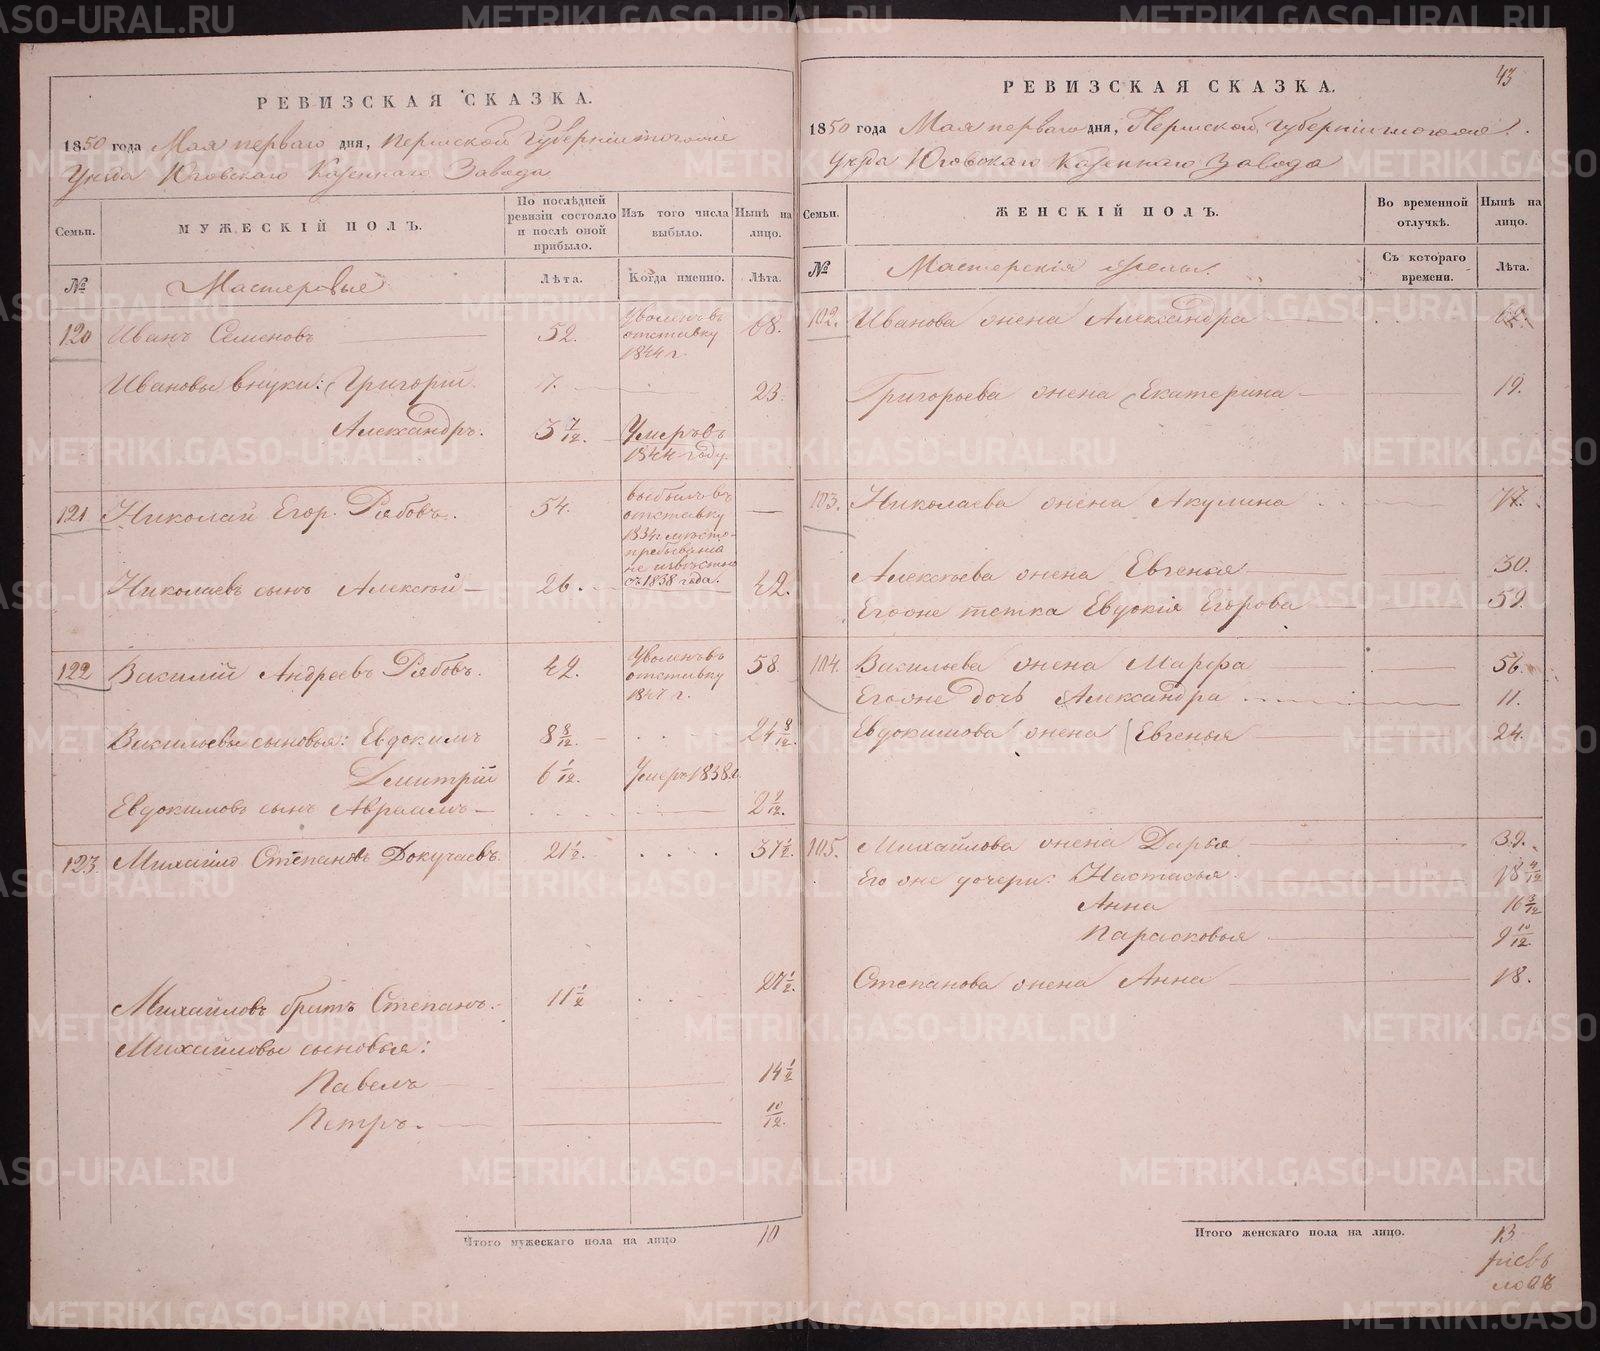 РЕВИЗСКАЯ СКАЗКА.
1850 года Мая перваго дня, Пермской Губернiи тогоже
Уезда Юговскаго Казеннаго Завода
Семьи.
МУЖЕСКIЙ ПОЛЪ.
По послѣдней ревизiи состояло и послѣ оной прибыло.
Изъ того числа выбыло.
Нынѣ на лицо.
№
Мастеровые
Лѣта.
Когда именно.
Лѣта.
120 Иванъ Семеновъ 52. Уволенъ въ отставку 1844 г. 68.
Ивановы внуки: Григорiй 7. 23.
Александръ. 3 7/12. Умеръ въ 1844 году.
121. Николай Егор. Рябовъ. 54. выбылъ въ отставку 1834 г. место-пребыванiя не известно съ 1838 года. —
Николаевъ сынъ Алексѣй — 26. 42.
122 Василiй Андреевъ Рябовъ. 42. Уволенъ въ отставку 1847 г. 58.
Васильевы сыновья: Евдокимъ 8 8/12. 24 8/12.
Дмитрiй 6 1/12. Умеръ 1838 г.
Евдокимовъ сынъ Авраамъ — 2 9/12.
123. Михайло Степановъ Докучаевъ. 21 1/2. 37 1/2.
Михайловъ братъ Степанъ. 11 1/2 27 1/2.
Михайловы сыновья:
Павелъ 14 1/2
Петръ. 10/12.
Итого мужескаго пола на лицо 10
43
РЕВИЗСКАЯ СКАЗКА.
1850 года Мая перваго дня, Пермской Губернiи тогоже
Уезда Юговскаго Казеннаго Завода
Семьи.
ЖЕНСКIЙ ПОЛЪ.
Во временной отлучкѣ.
Нынѣ на лицо.
№
Мастерскiя жены.
Съ котораго времени.
Лѣта.
102. Иванова жена Александра
Григорьева жена Екатерина — 19.
103. Николаева жена Акулина 77.
Алексѣева жена Евгенья 30.
Его же тетка Евдокiя Егорова 59.
104. Васильева жена Марфа 56.
Его же дочь Александра 11.
Евдокимова жена Евгенья 24.
105. Михайлова жена Дарья 39.
Его же дочери: Настасья 18 4/12
Анна 16 3/12
Парасковья 9 10/12.
Степанова жена Анна 18.
Итого женскаго пола на лицо. 13